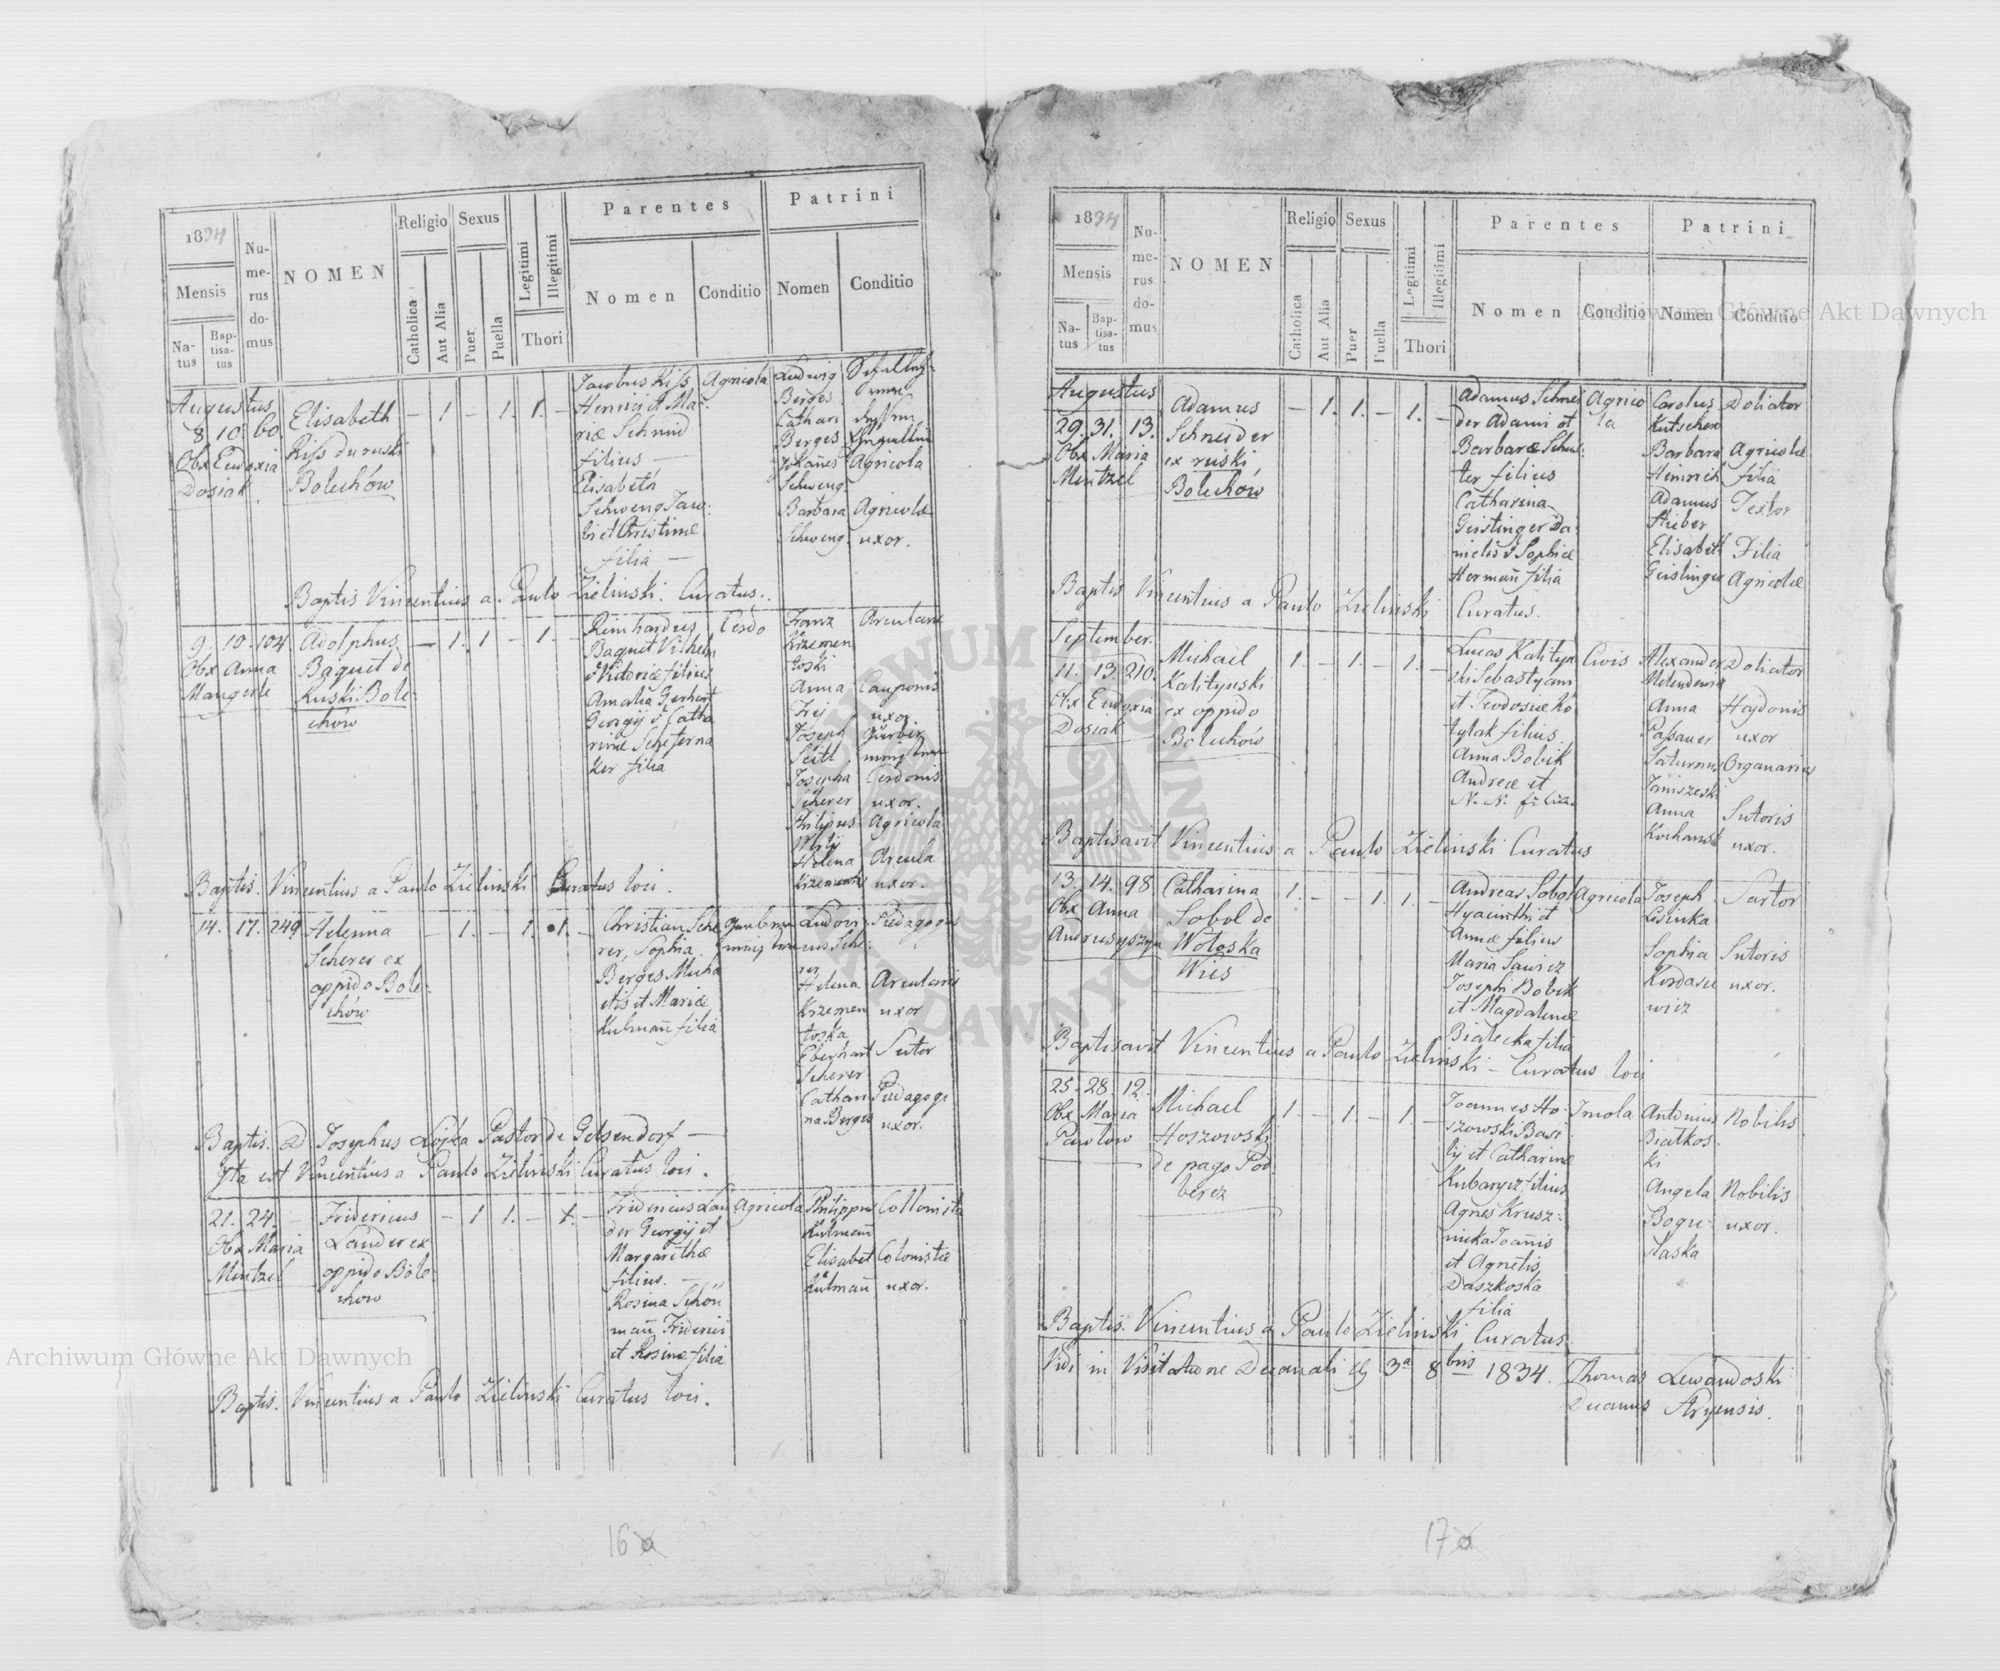 1834
Mensis
Na-
tus
Bap-
tisa-
tus
Nu-
me-
rus
do-
mus
NOMEN
Religio
Catholica
Aut Alia
Sexus
Puer
Puella
Legitimi
Illegitimi
Thori
Parentes
Nomen
Conditio
Patrini
Nomen
Conditio
Augustus
8 10 60.
Obx Eudoxia
Dosiak
Elisabeth
Kiss de ruski
Bolechów
– 1. – 1. 1. –
Jacobus Kiss
Henrici et Ma:
riæ Schmid
filius —
Elisabeth
Schweng Jaco:
bi et Christinæ
filia —
Agricola
Ludwig
Berges
Cathari
Berges
Johanes
Schweng.
Barbara
Schweng.
Agricola
Agricolæ
uxor.
Baptis Vincentius a Paulo Zieliński. Curatus.
9. 10. 104
Obx Anna
Mangerle
Adolphus
Baguet de
Ruski Bole:
chów
– 1. 1 – 1. –
Reinhardus
Baguet Vilhelm
et Victoriæ filius
Amalia Gerhart
Georgij et Catha
rinæ
ker filia
Cerdo
Franz
Krzemen
toski
Anna
Frej
Joseph
Seitl
Josepha
Scherer
Philipus
Helena
Krzementos
Arcularius
Cauponis
uxor.
Cerdonis
uxor.
Agricola
Arcula
uxor.
Baptis. Vincentius a Paulo Zieliński Curatus loci.
14. 17. 249
Helenna
Scherer ex
oppido Bole:
chów
– 1. – 1. 1. –
Christian Sche
rer, Sophia
Berges Micha
elis et Mariæ
Kulman filia
Ludovi
cus Sche:
rer
Helena
Krzemen
toska
Eberhart
Scherer
Cathari
na Berges
Pedagogus
Arcularii
uxor
Sutor
Pedagogi
uxor.
Baptis. D Josephus Łojka Pastor de Gelsendorf —
Ita est Vincentius a Paulo Zieliński Curatus loci.
21. 24. –
Obx Maria
Mentzel
Fridericus
Lander ex
oppido Bole:
chow
– 1 1. – 1. –
Fridericus Lan
der Georgij et
Margarethæ
filius. —
Rosina Schön
man Friderici
et Rosinæ filia
Agricola
Philippus
Kulman
Elisabet
Kulman
Collonista
Colonistæ
uxor.
Baptis. Vincentius a Paulo Zieliński Curatus loci.
16a
1834
Mensis
Na-
tus
Bap-
tisa-
tus
Nu-
me-
rus
do-
mus
NOMEN
Religio
Catholica
Aut Alia
Sexus
Puer
Puella
Legitimi
Illegitimi
Thori
Parentes
Nomen
Conditio
Patrini
Nomen
Conditio
Augustus
29. 31. 13.
Obx Maria
Mentzel
Adamus
Schneider
ex ruski
Bolechow
– 1. 1. – 1. –
Adamus Schnei
der Adami et
Barbaræ Schus:
ter filius
Catharina
Geistinger Da:
nielis et Sophiæ
Herman filia
Agrico
la
Carolus
Kutscher
Barbara
Heinrich
Adamus
Stieber
Elisabeth
Geislinger
Doliator
Agricolæ
filia
Textor
Filia
Agricolæ
Baptis Vincentius a Paulo Zieliński Curatus.
September.
11. 13. 210.
Obx Eudoxia
Dosiak
Michael
Kalityński
ex oppido
Bolechów
1. – 1. – 1. –
Lucas Kalityn
ski Sebastyani
et Teodosiæ Ko
tylak filius.
Anna Bobik
Andreæ et
N. N. filia.
Civis
Alexander
Anna
Passauer
Saturnus
Janiszeski
Anna
Kochansk
Doliator
Hajdonis
uxor
Organarius
Sutoris
uxor.
Baptisavit Vincentius a Paulo Zieliński Curatus
13. 14. 98
Obx Anna
Andrusyszyn
Catharina
Sobol de
Wołoska
Wies
1. – – 1. 1. –
Andreas Sobol
Hyacinthi et
Annæ filius
Maria Sawicz
Josephi Bobik
et Magdalenæ
Białecka filia
Agricola
Joseph
Lesiuka
Sophia
Kordasie
wicz
Sartor
Sutoris
uxor.
Baptisavit Vincentius a Paulo Zieliński – Curatus loci
25. 28. 12.
Obx Maria
Pawlow
Michael
Hoszowski
de pago Pod
berez
1. – 1. – 1. –
Joannes Ho-
szowski Basi
lij et Catharinæ
Kubarycz filius
Agnes Krusz:
nicka Joanis
et Agnetis
Daszkoska
filia
Incola
Antonius
Białkos:
ki
Angela
Bogu:
slaska
Nobilis
Nobilis
uxor.
Baptis. Vincentius a Paulo Zieliński Curatus.
Vidi in Visitatione Decanali dg 3a 8bris 1834. Thomas Lewandoski
Decanus Stryensis.
17a
Archiwum Główne Akt Dawnych
Archiwum Główne Akt Dawnych
ARCHIWUM GŁÓWNE AKT DAWNYCH